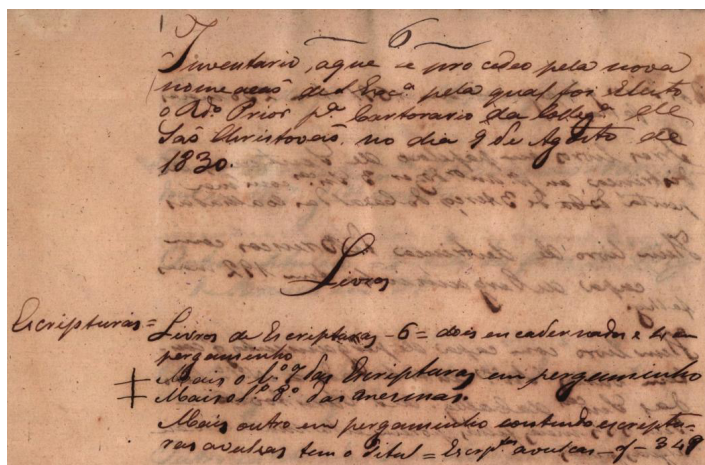 6
Inventario, aque se procedeo pela nova
nomeação de S. Exc.ª pela qual foi Eleito
o R.do Prior p.ª Cartorario da Colleg.ª de
São Christovão, no dia 9 de Agosto de
1830.
Livros
Escripturas = Livros de Escripturas - 6 = dois encadernados e 4 em
pergaminho
Mais o L.º 7º das Escripturas em pergaminho
Mais o L.º 8º das mesmas.
Mais outro em pergaminho contendo escriptu-
ras avulsas tem o Titul = Escrp.tas avulsas - 349